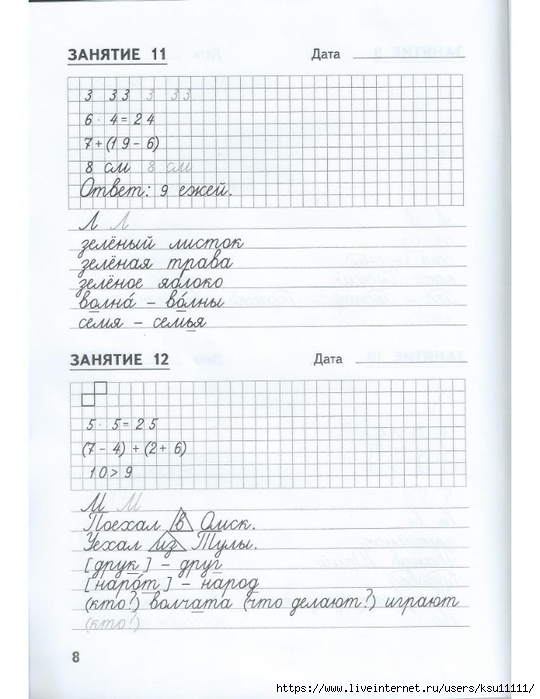 ЗАНЯТИЕ 11 Дата
3 33 3 33
6 · 4 = 24
7 + (19 - 6)
8 см 8 см
Ответ: 9 ежей.
Л Л
зелёный листок
зелёная трава
зелёное яблоко
волна́ – во́лны
семя – семья
ЗАНЯТИЕ 12 Дата
5 · 5 = 25
(7 - 4) + (2 + 6)
10 > 9
М М
Поехал в Омск.
Уехал из Тулы.
[друк] – друг
[наро́т] – народ
(кто?) волчата (что делают?) играют
(кто?)
8
https://www.liveinternet.ru/users/ksu11111/